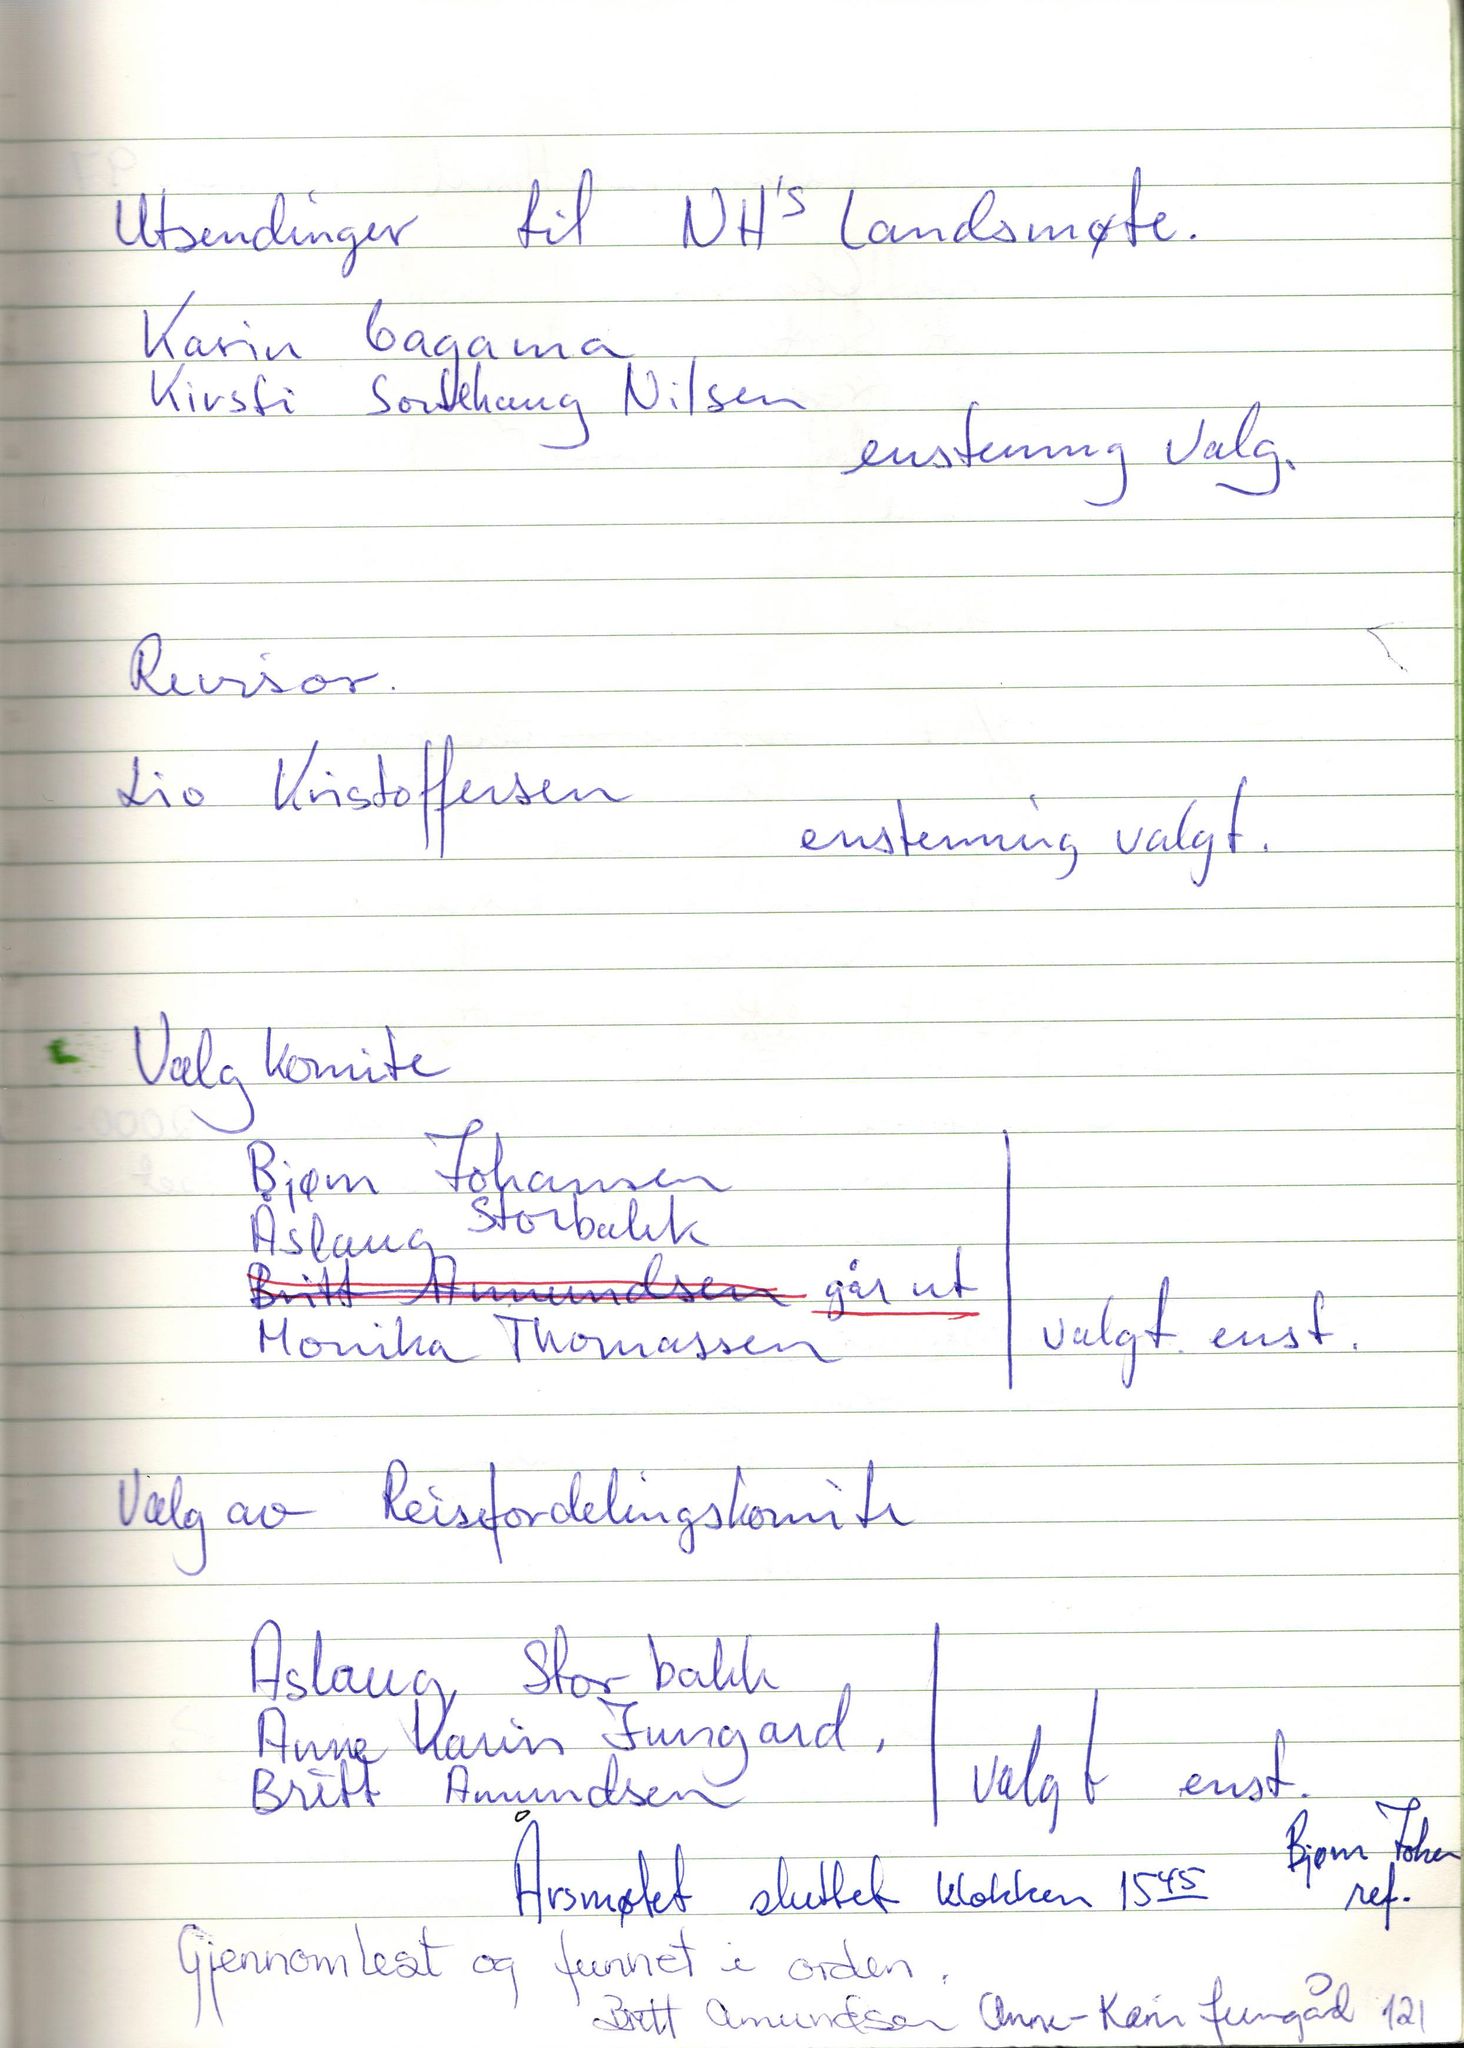 Utsendinger til NH's Landsmøte.
Karin Gagama
Kirsti Nilsen
enstemmig valg.
Revisor.
Lio Kristoffersen
enstemmig valgt.
Valgkomite
Bjørn Johansen
Åslaug Storbakk
Britt Amundsen går ut
Monika Thomassen
valgt enst.
Valg av Reisefordelingskomite
Aslaug Storbakk
Anne Karin Jungård,
Britt Amundsen
valgt enst.
Årsmøtet sluttet klokken 15 45
Bjørn Johan
ref.
Gjennomlest og funnet i orden.
Britt Amundsen Anne-Karin Jungård 121